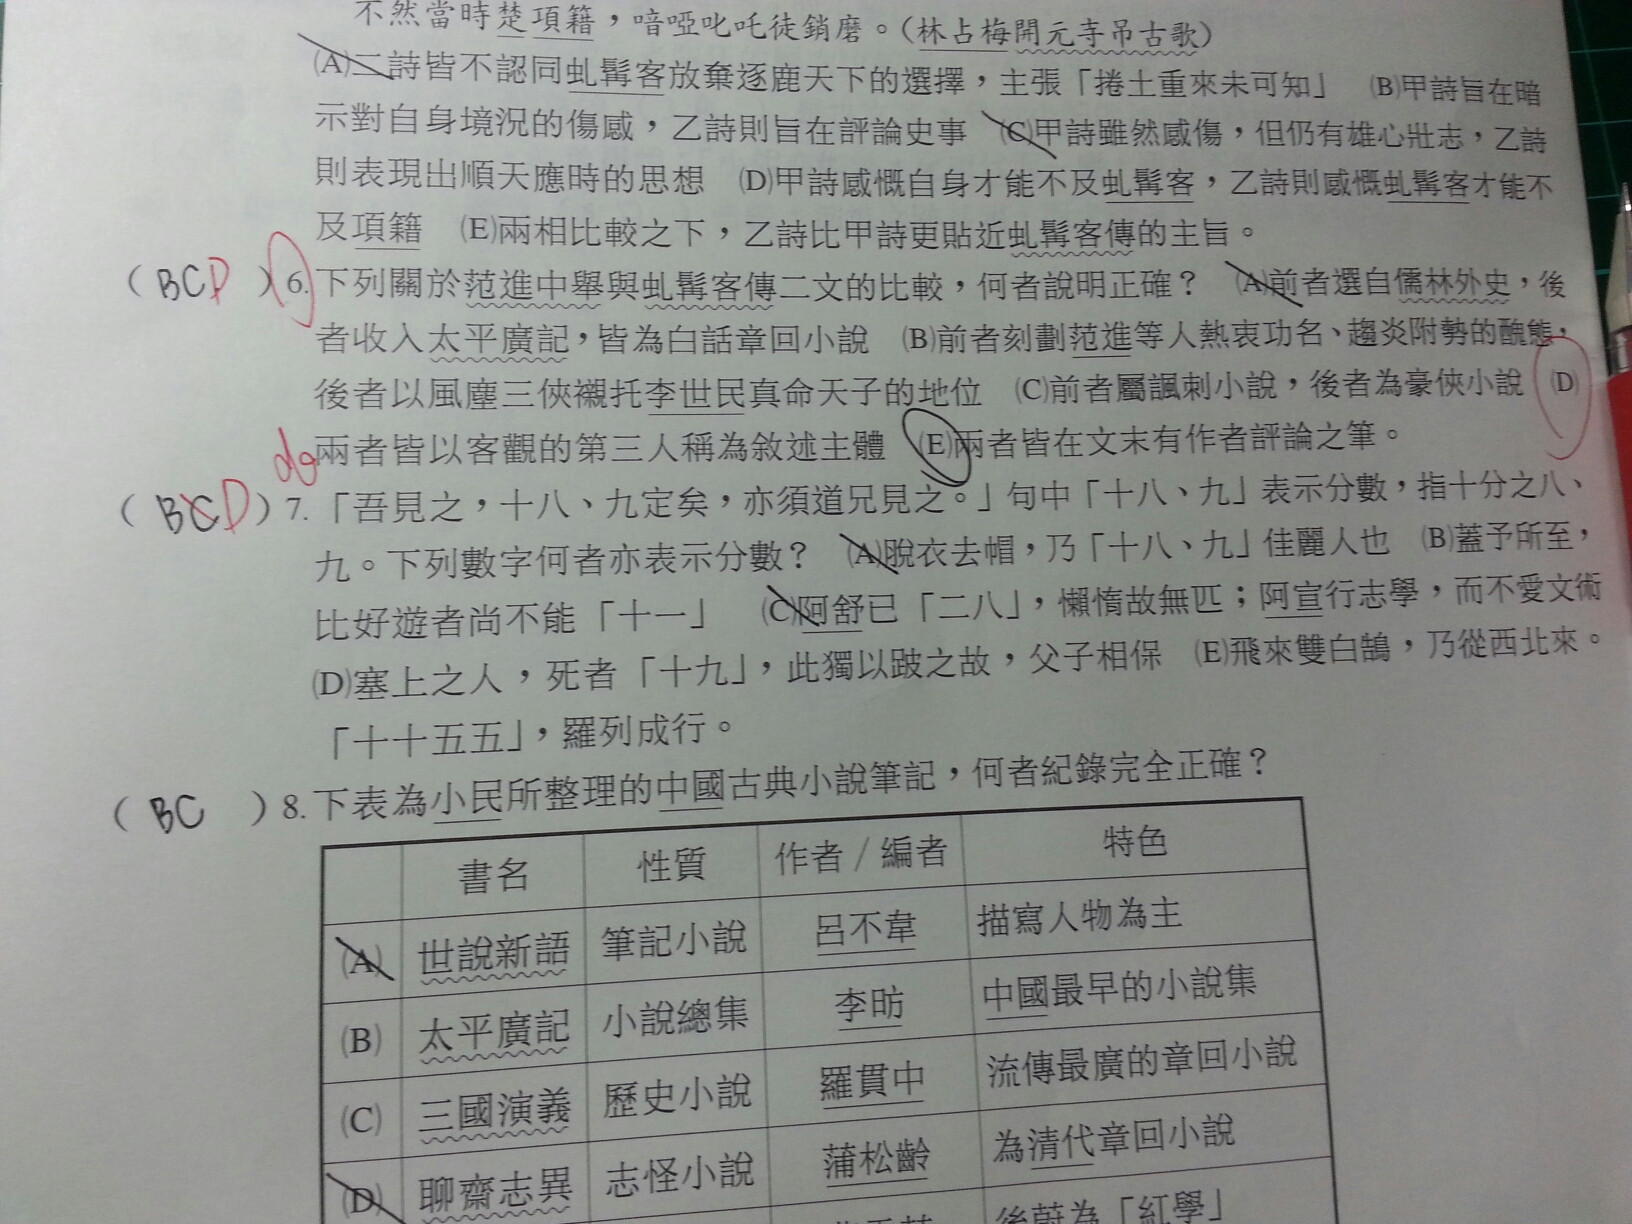 不然當時楚項籍，喑啞叱吒徒銷磨。（林占梅開元寺吊古歌）
(A)二詩皆不認同虬髯客放棄逐鹿天下的選擇，主張「捲土重來未可知」 (B)甲詩旨在暗
示對自身境況的傷感，乙詩則旨在評論史事 (C)甲詩雖然感傷，但仍有雄心壯志，乙詩
則表現出順天應時的思想 (D)甲詩感慨自身才能不及虬髯客，乙詩則感慨虬髯客才能不
及項籍 (E)兩相比較之下，乙詩比甲詩更貼近虬髯客傳的主旨。
（BCD）6.下列關於范進中舉與虬髯客傳二文的比較，何者說明正確？ (A)前者選自儒林外史，後
者收入太平廣記，皆為白話章回小說 (B)前者刻劃范進等人熱衷功名、趨炎附勢的醜態，
後者以風塵三俠襯托李世民真命天子的地位 (C)前者屬諷刺小說，後者為豪俠小說 (D)
兩者皆以客觀的第三人稱為敘述主體 (E)兩者皆在文末有作者評論之筆。
（BCD）7.「吾見之，十八、九定矣，亦須道兄見之。」句中「十八、九」表示分數，指十分之八、
九。下列數字何者亦表示分數？ (A)脫衣去帽，乃「十八、九」佳麗人也 (B)蓋予所至，
比好遊者尚不能「十一」 (C)阿舒已「二八」，懶惰故無匹；阿宣行志學，而不愛文術
(D)塞上之人，死者「十九」，此獨以跛之故，父子相保 (E)飛來雙白鵠，乃從西北來。
「十十五五」，羅列成行。
（BC）8.下表為小民所整理的中國古典小說筆記，何者紀錄完全正確？
書名 性質 作者／編者 特色
(A) 世說新語 筆記小說 呂不韋 描寫人物為主
(B) 太平廣記 小說總集 李昉 中國最早的小說集
(C) 三國演義 歷史小說 羅貫中 流傳最廣的章回小說
(D) 聊齋志異 志怪小說 蒲松齡 為清代章回小說
後蔚為「紅學」